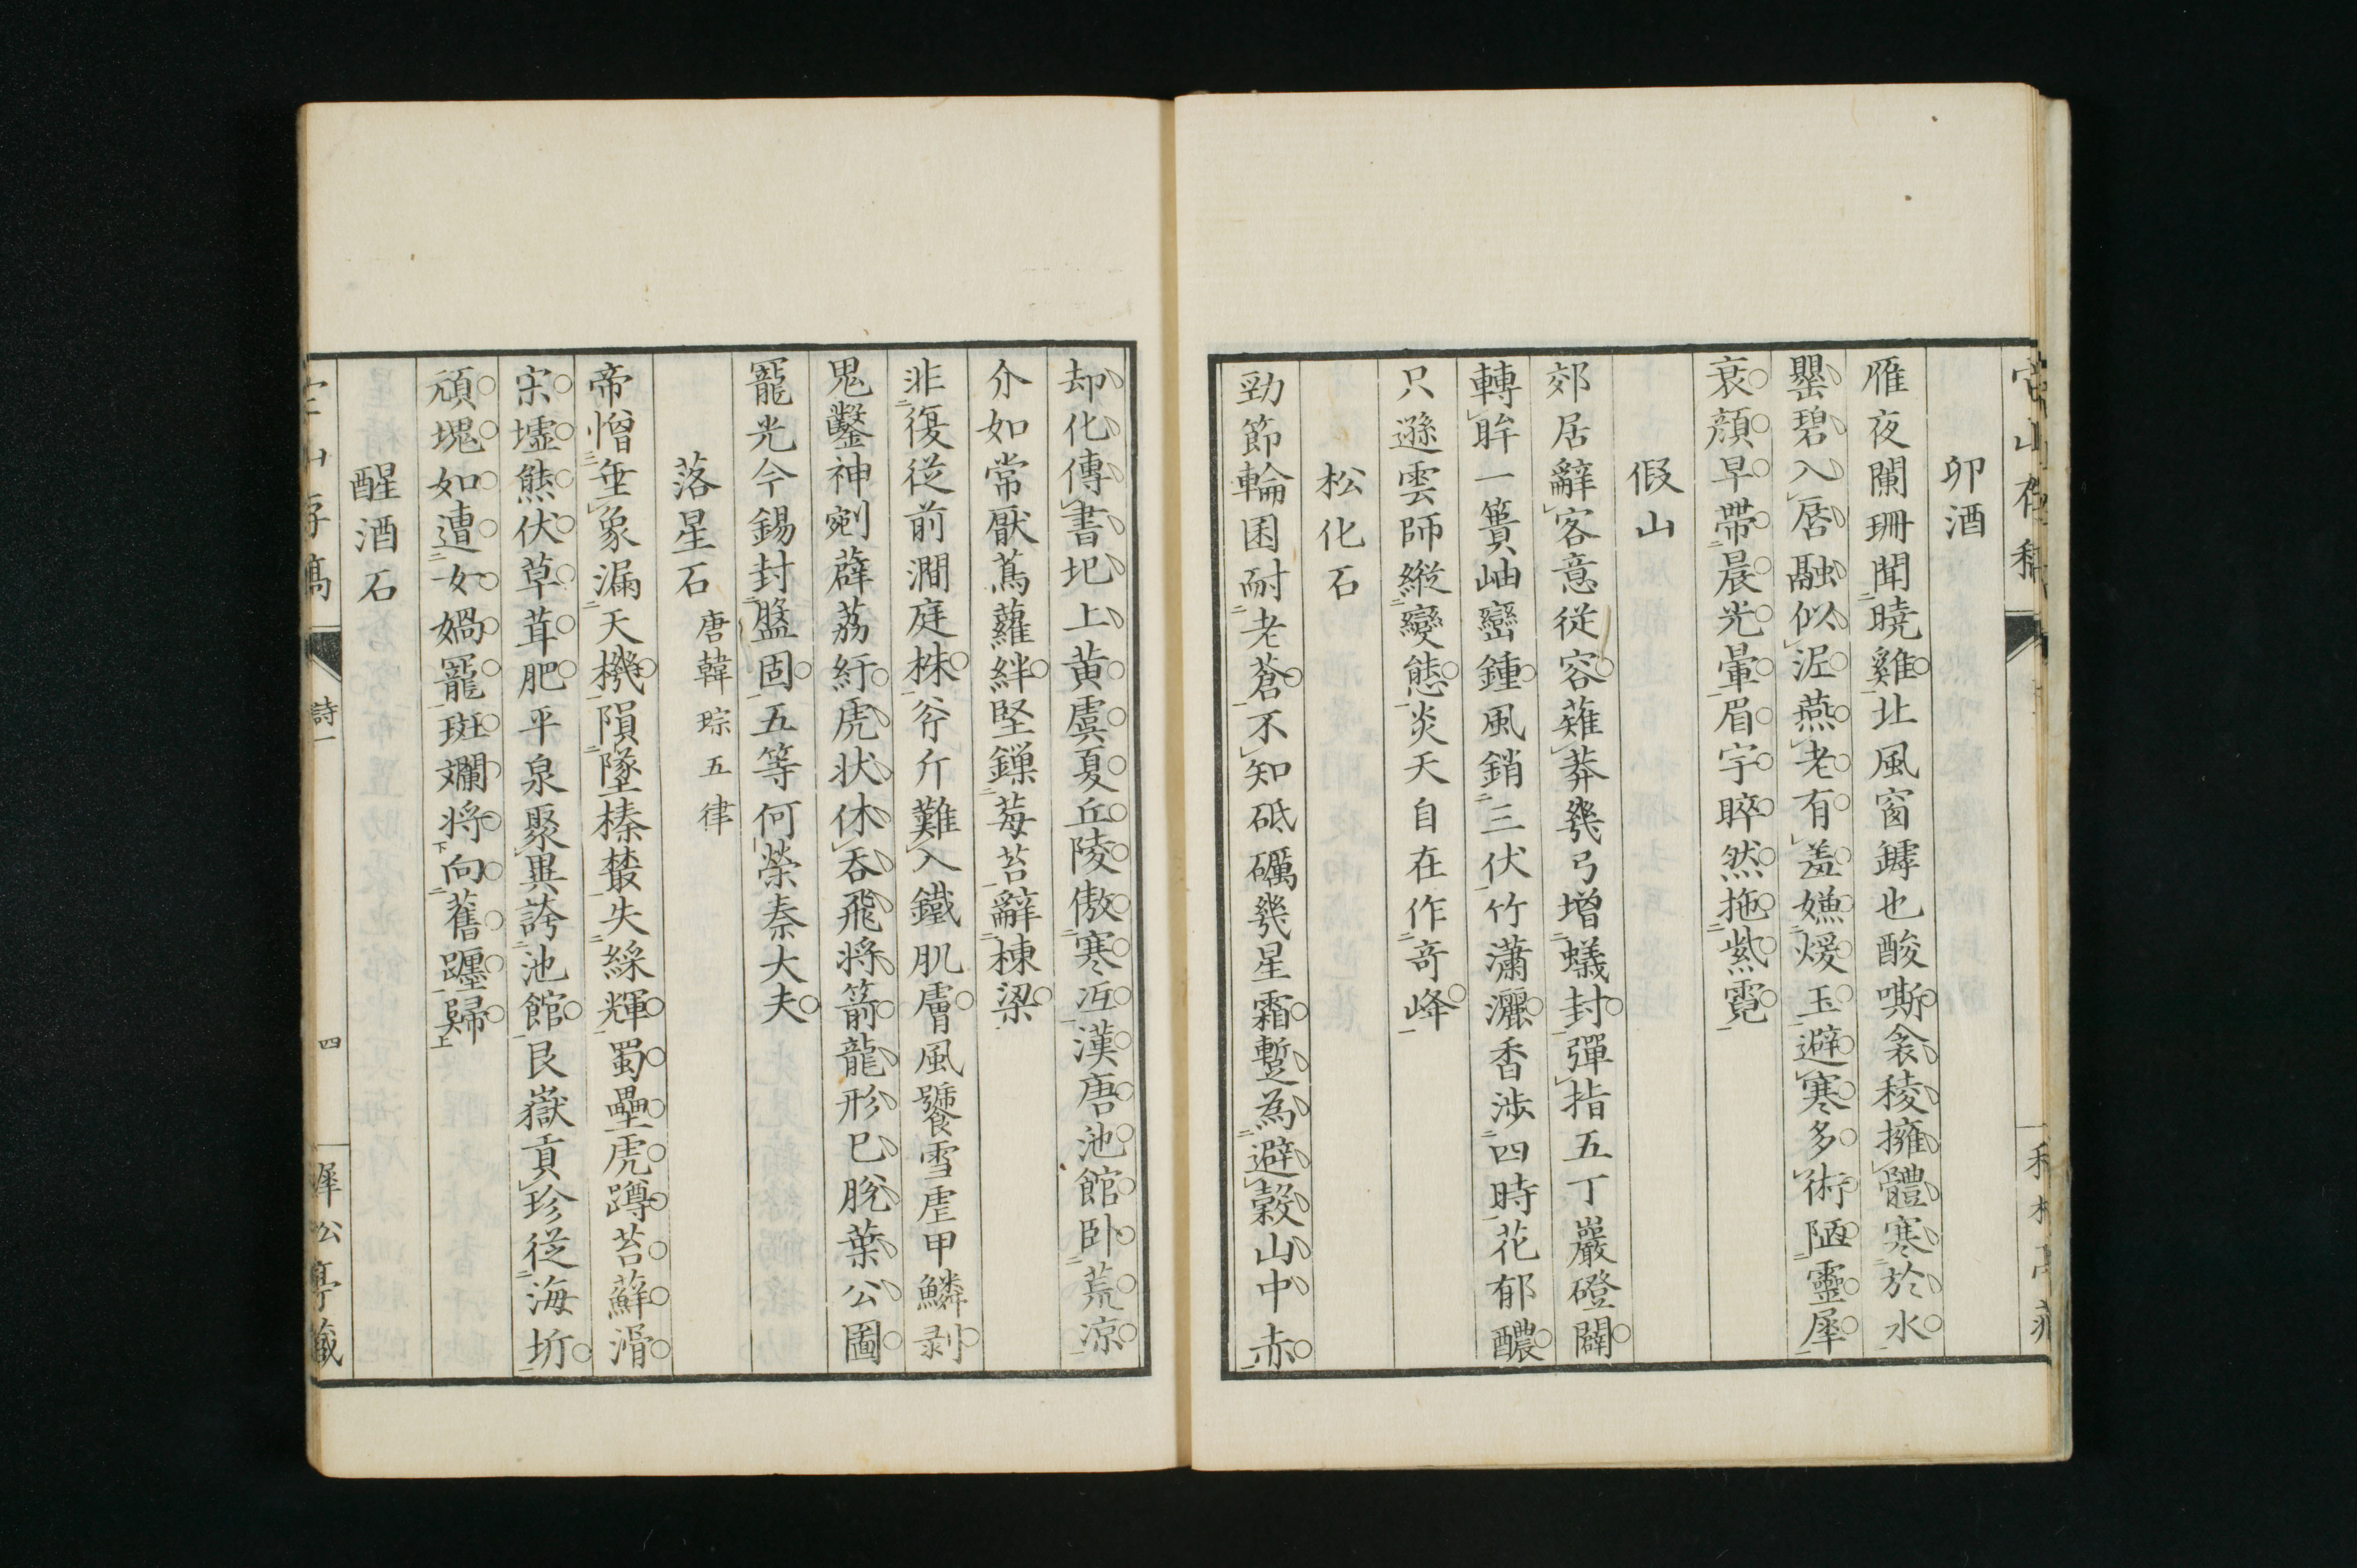 卯酒
雁夜闌珊聞曉雞北風窗罅也酸嘶衾稜擁體寒於水
罌碧入唇融似泥燕老有羞嫌煖玉避寒多術陋靈犀
衰顏早帶晨光暈眉宇睟然拖紫霓
假山
郊居辭客意從容薙莽幾弓增蟻封彈指五丁巖磴闢
轉眸一簣岫巒鍾風銷三伏竹瀟灑香涉四時花郁醲
只遜雲師縱變態炎天自在作奇峰
松化石
勁節輪囷耐老蒼不知砥礪幾星霜暫為避穀山中赤
却化傳書圯上黄虞夏丘陵傲寒冱漢唐池館卧荒凉
介如常厭蔦蘿絆堅鏁莓苔辭棟梁
非復從前澗庭株斧斤難入鐵肌膚風饕雪虐甲鱗剥
鬼鑿神剜薜荔紆虎状休吞飛將箭龍形已脫葉公圖
寵光今錫封盤固五等何榮秦大夫
落星石 唐韓琮五律
帝憎垂象漏天機隕墜榛藂失綵輝蜀壘虎蹲苔蘚滑
宋墟熊伏草茸肥平泉聚異誇池館艮嶽貢珍從海圻
頑塊如遭女媧寵斑斕將向舊躔歸
醒酒石
詩一
四
犀松亭藏